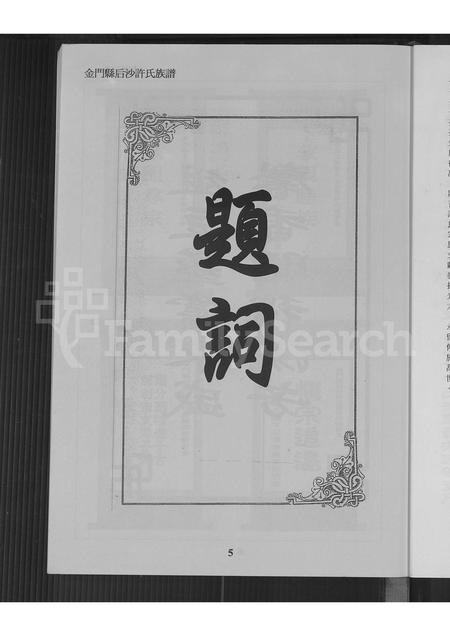 金門縣后沙許氏族譜
題詞
FamilySearch
5